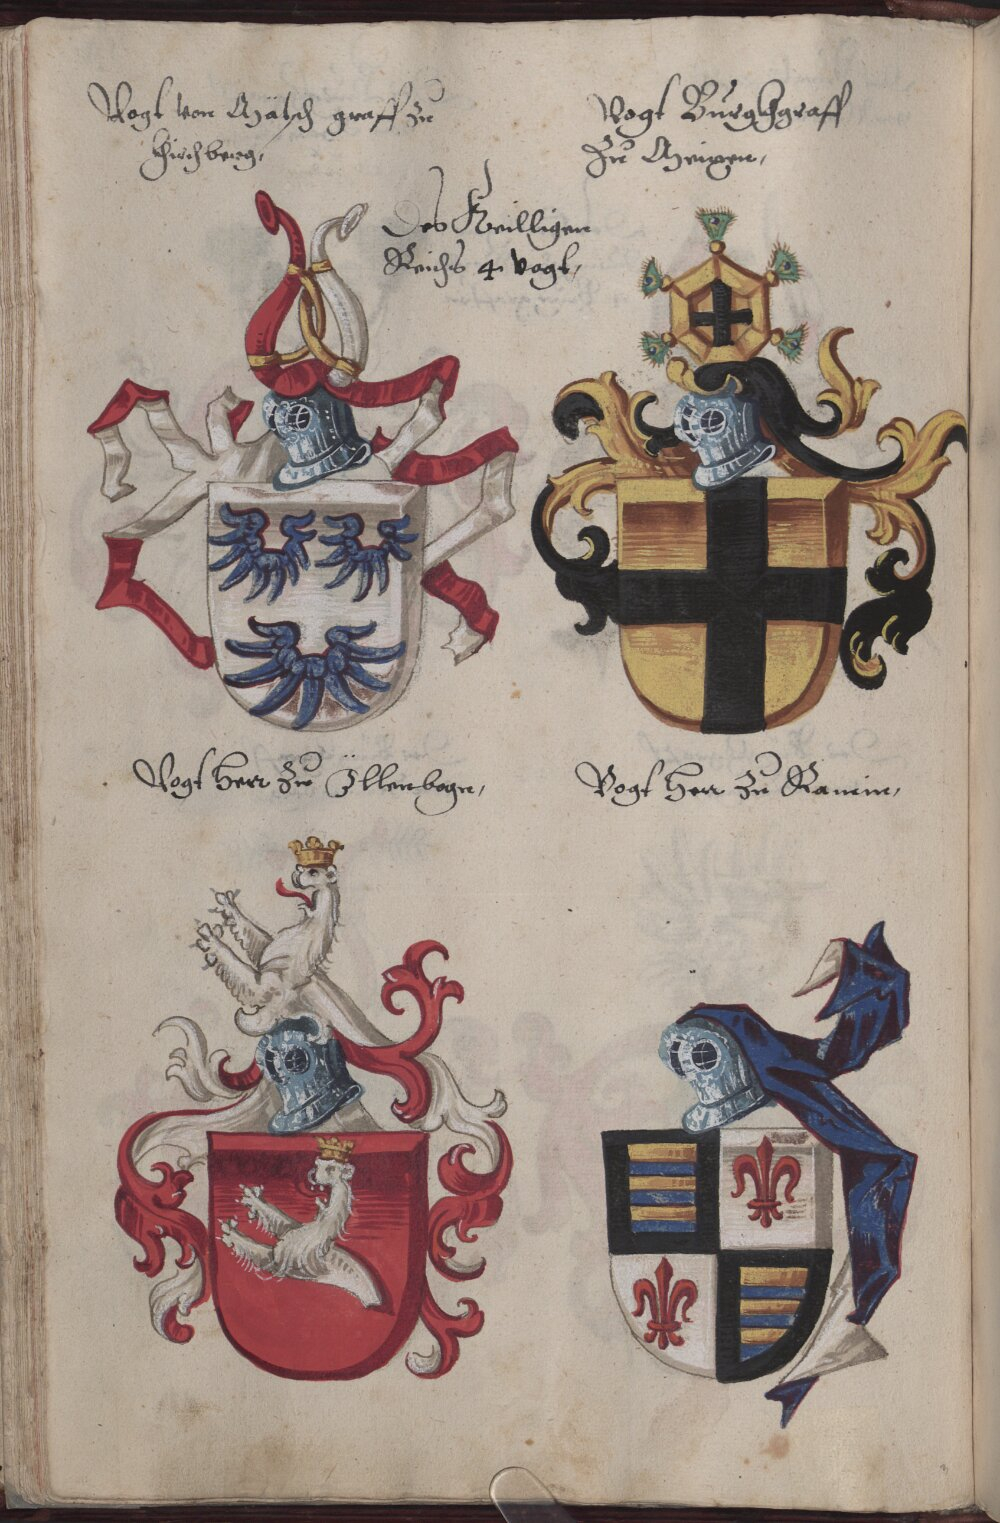 Vogt von Mätsch graff zu
Kirchberg,
Vogt Burgkgraff
Zu Meixen,
Des Heilligen
Reichs 4 vogt,
Vogt Herr zu Ellenbogn,
Vogt Herr zu